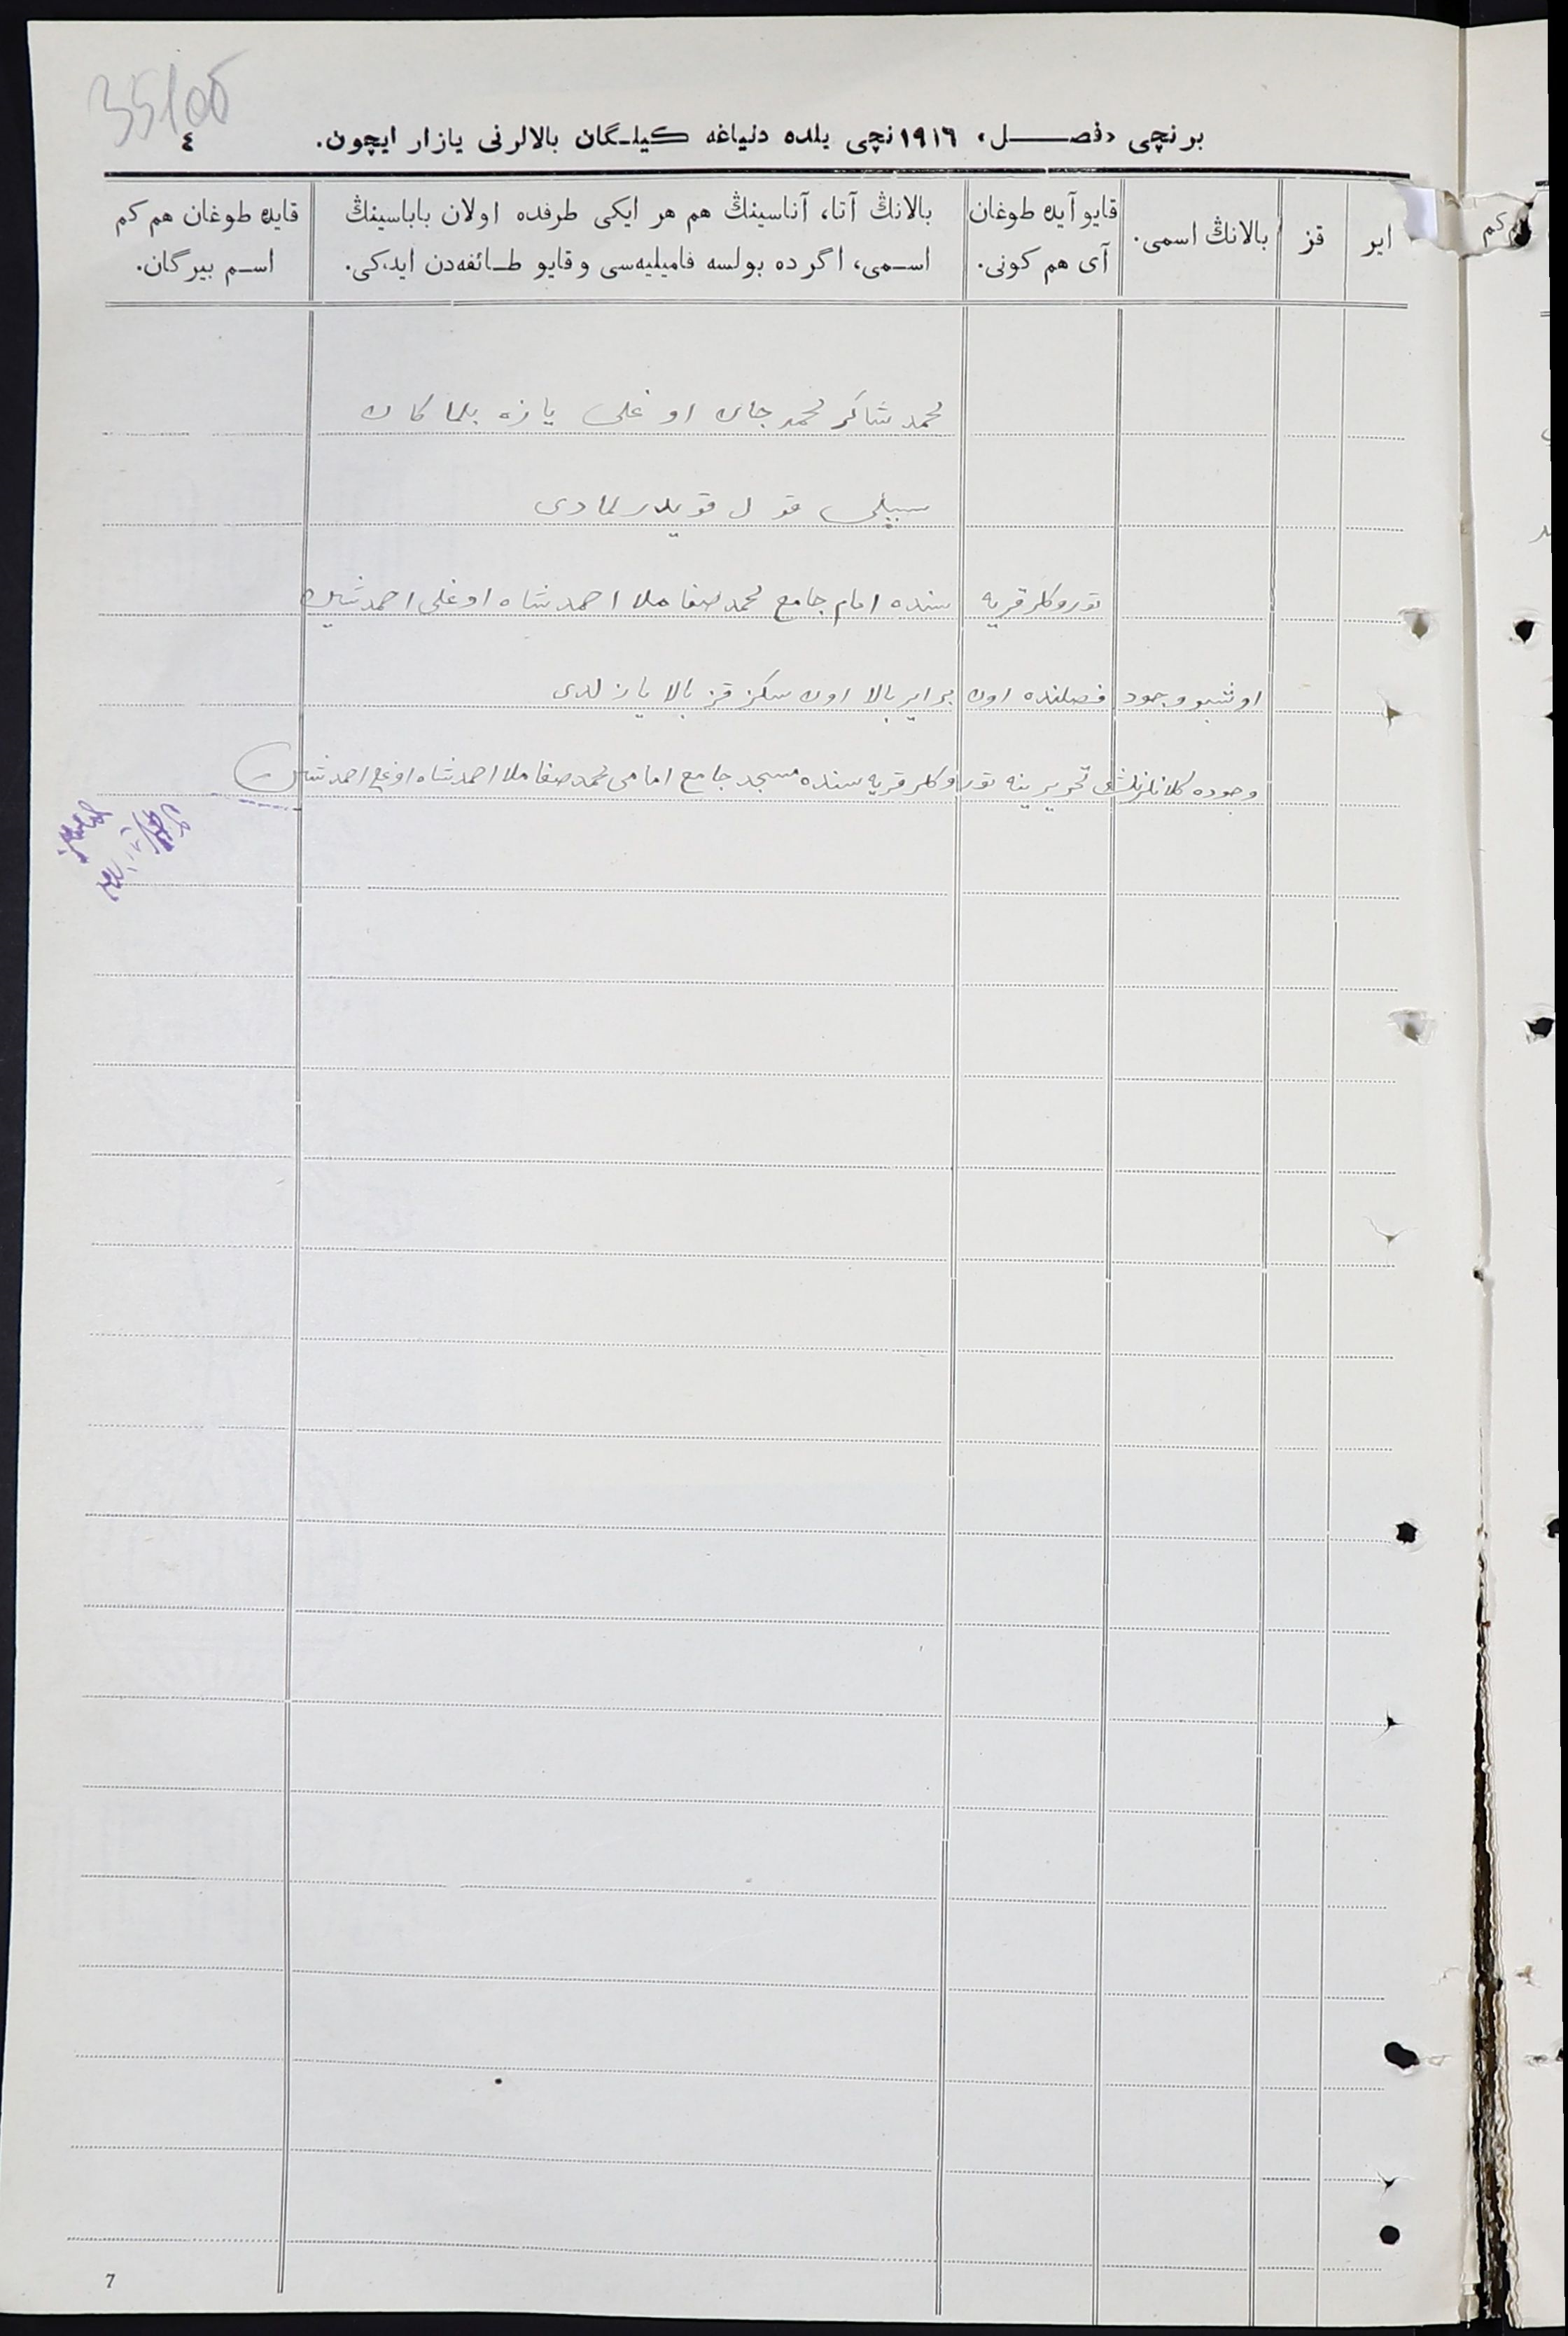 35/об
برنچی «فصل» ١٩١٦ نچی یلده دنیاغه كیلگان بالالرنی یازار ایچون.
٤
ایر
قز
بالانڭ اسمی.
قایو آیده طوغان
آی هم كونی.
بالانڭ آتا، آناسینڭ هم هر ایكی طرفده اولان باباسینڭ
اسمی، اگر ده بولسه فامیلیه‌سی و قایو طائفه‌دن ایدكی.
قایده طوغان هم كم
اسم بیرگان.
محمد شاكر محمد جان اوغلی یازه بلماكان
سببلی قول قویدرلمادی
توروكلر قریه سنده امام جامع محمد صفا ملا احمد شاه اوغلی احمد شین
اوشبو وجود فصلنده اون بر ایر بالا اون سكز قز بالا یازلدی
وجوده كلانلرنڭ تحریرینه توروكلر قریه سنده مسجد جامع امامی محمد صفا ملا احمد شاه اوغلی احمد شین
7
كم